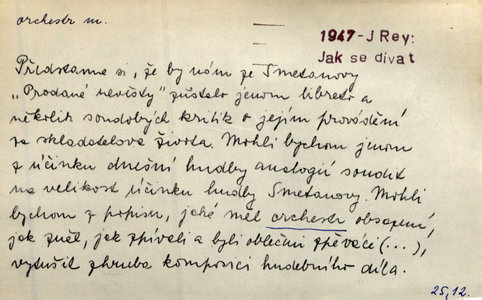 orchestr m.
1947 - J Rey:
Jak se dívat
Představme si, že by nám ze Smetanovy
„Prodané nevěsty" zůstalo jenom libreto a
několik soudobých kritik o jejím provádění
za skladatelova života. Mohli bychom jenom
z účinku dnešní hudby analogií soudit
na velikost účinku hudby Smetanovy. Mohli
bychom z popisu, jaké měl orchestr obsazení,
jak zněl, jak zpívali a byli oblečeni zpěváci (...),
vytušit zhruba komposici hudebního díla.
25,12.